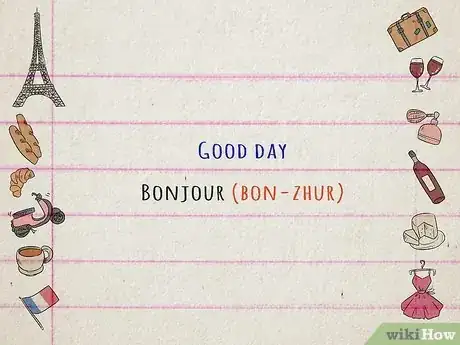 Good day
Bonjour (bon-zhur)
wikiHow